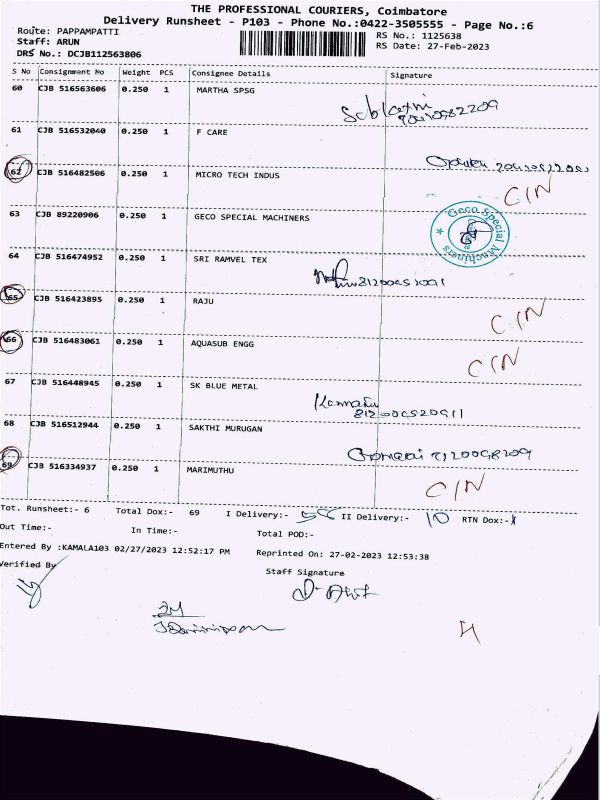 THE PROFESSIONAL COURIERS, Coimbatore
Delivery Runsheet - P103 - Phone No.:0422-3505555 - Page No.:6
Route: PAPPAMPATTI RS No.: 1125638
Staff: ARUN RS Date: 27-Feb-2023
DRS No.: DCJB112563806
S No Consignment No Weight PCS Consignee Details Signature
60 CJB 516563606 0.250 1 MARTHA SPSG
61 CJB 516532040 0.250 1 F CARE
62 CJB 516482506 0.250 1 MICRO TECH INDUS CIN
63 CJB 89220906 0.250 1 GECO SPECIAL MACHINERS Geco Special Machiners
64 CJB 516474952 0.250 1 SRI RAMVEL TEX
65 CJB 516423895 0.250 1 RAJU CIN
66 CJB 516483061 0.250 1 AQUASUB ENGG CIN
67 CJB 516448945 0.250 1 SK BLUE METAL
68 CJB 516512944 0.250 1 SAKTHI MURUGAN
69 CJB 516334937 0.250 1 MARIMUTHU CIN
Tot. Runsheet:- 6 Total Dox:- 69 I Delivery:- II Delivery:- 10 RTN Dox:-
Out Time:- In Time:- Total POD:-
Entered By :KAMALA103 02/27/2023 12:52:17 PM Reprinted On: 27-02-2023 12:53:38
Verified By Staff Signature